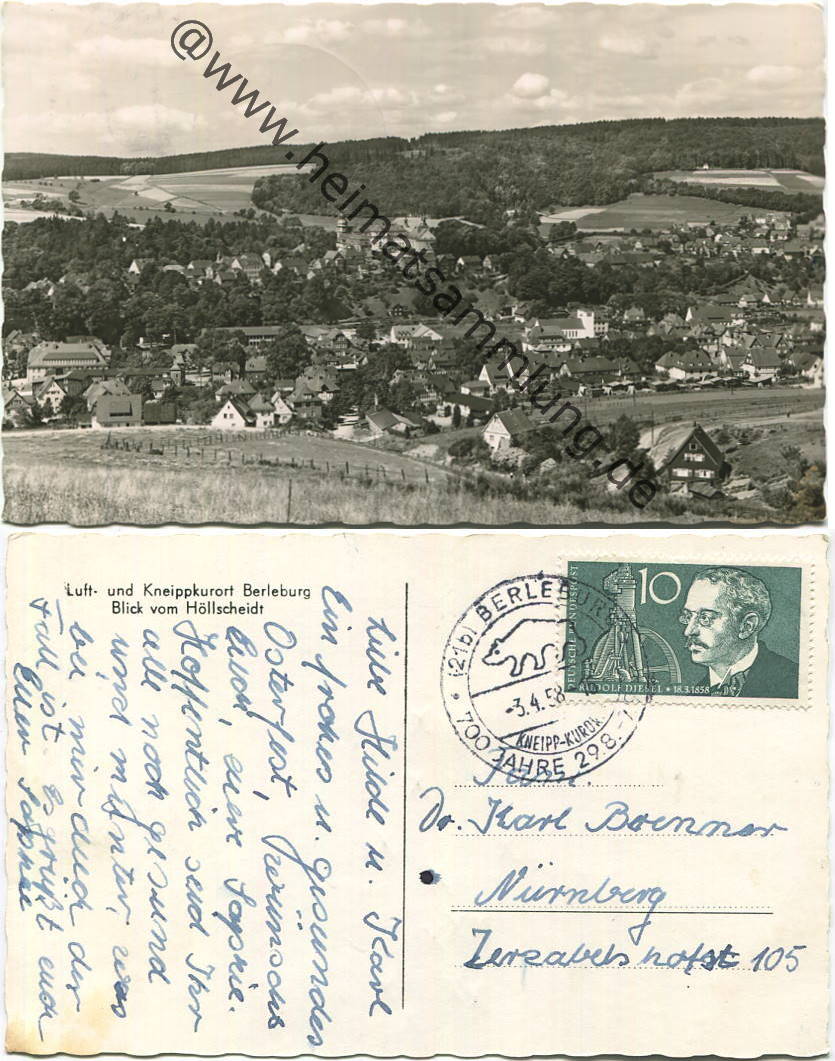 @www.heimatsammlung.de
Luft- und Kneippkurort Berleburg
Blick vom Höllscheidt
Liebe Hilde u. Karl
Ein frohes u. gesundes
Osterfest, wünscht
Euch, eure Sophie.
Hoffentlich seid Ihr
alle noch gesund
und munter, was
bei mir auch der
Fall ist. Es grüßt euch
Eure Sophie
(21b) BERLEBURG
-3.4.58
KNEIPP-KURORT
700 JAHRE 29.8.-
DEUTSCHE BUNDESPOST
10
RUDOLF DIESEL * 18.3.1858
Fam.
Dr. Karl Brenner
Nürnberg
Zerzabelshofst 105